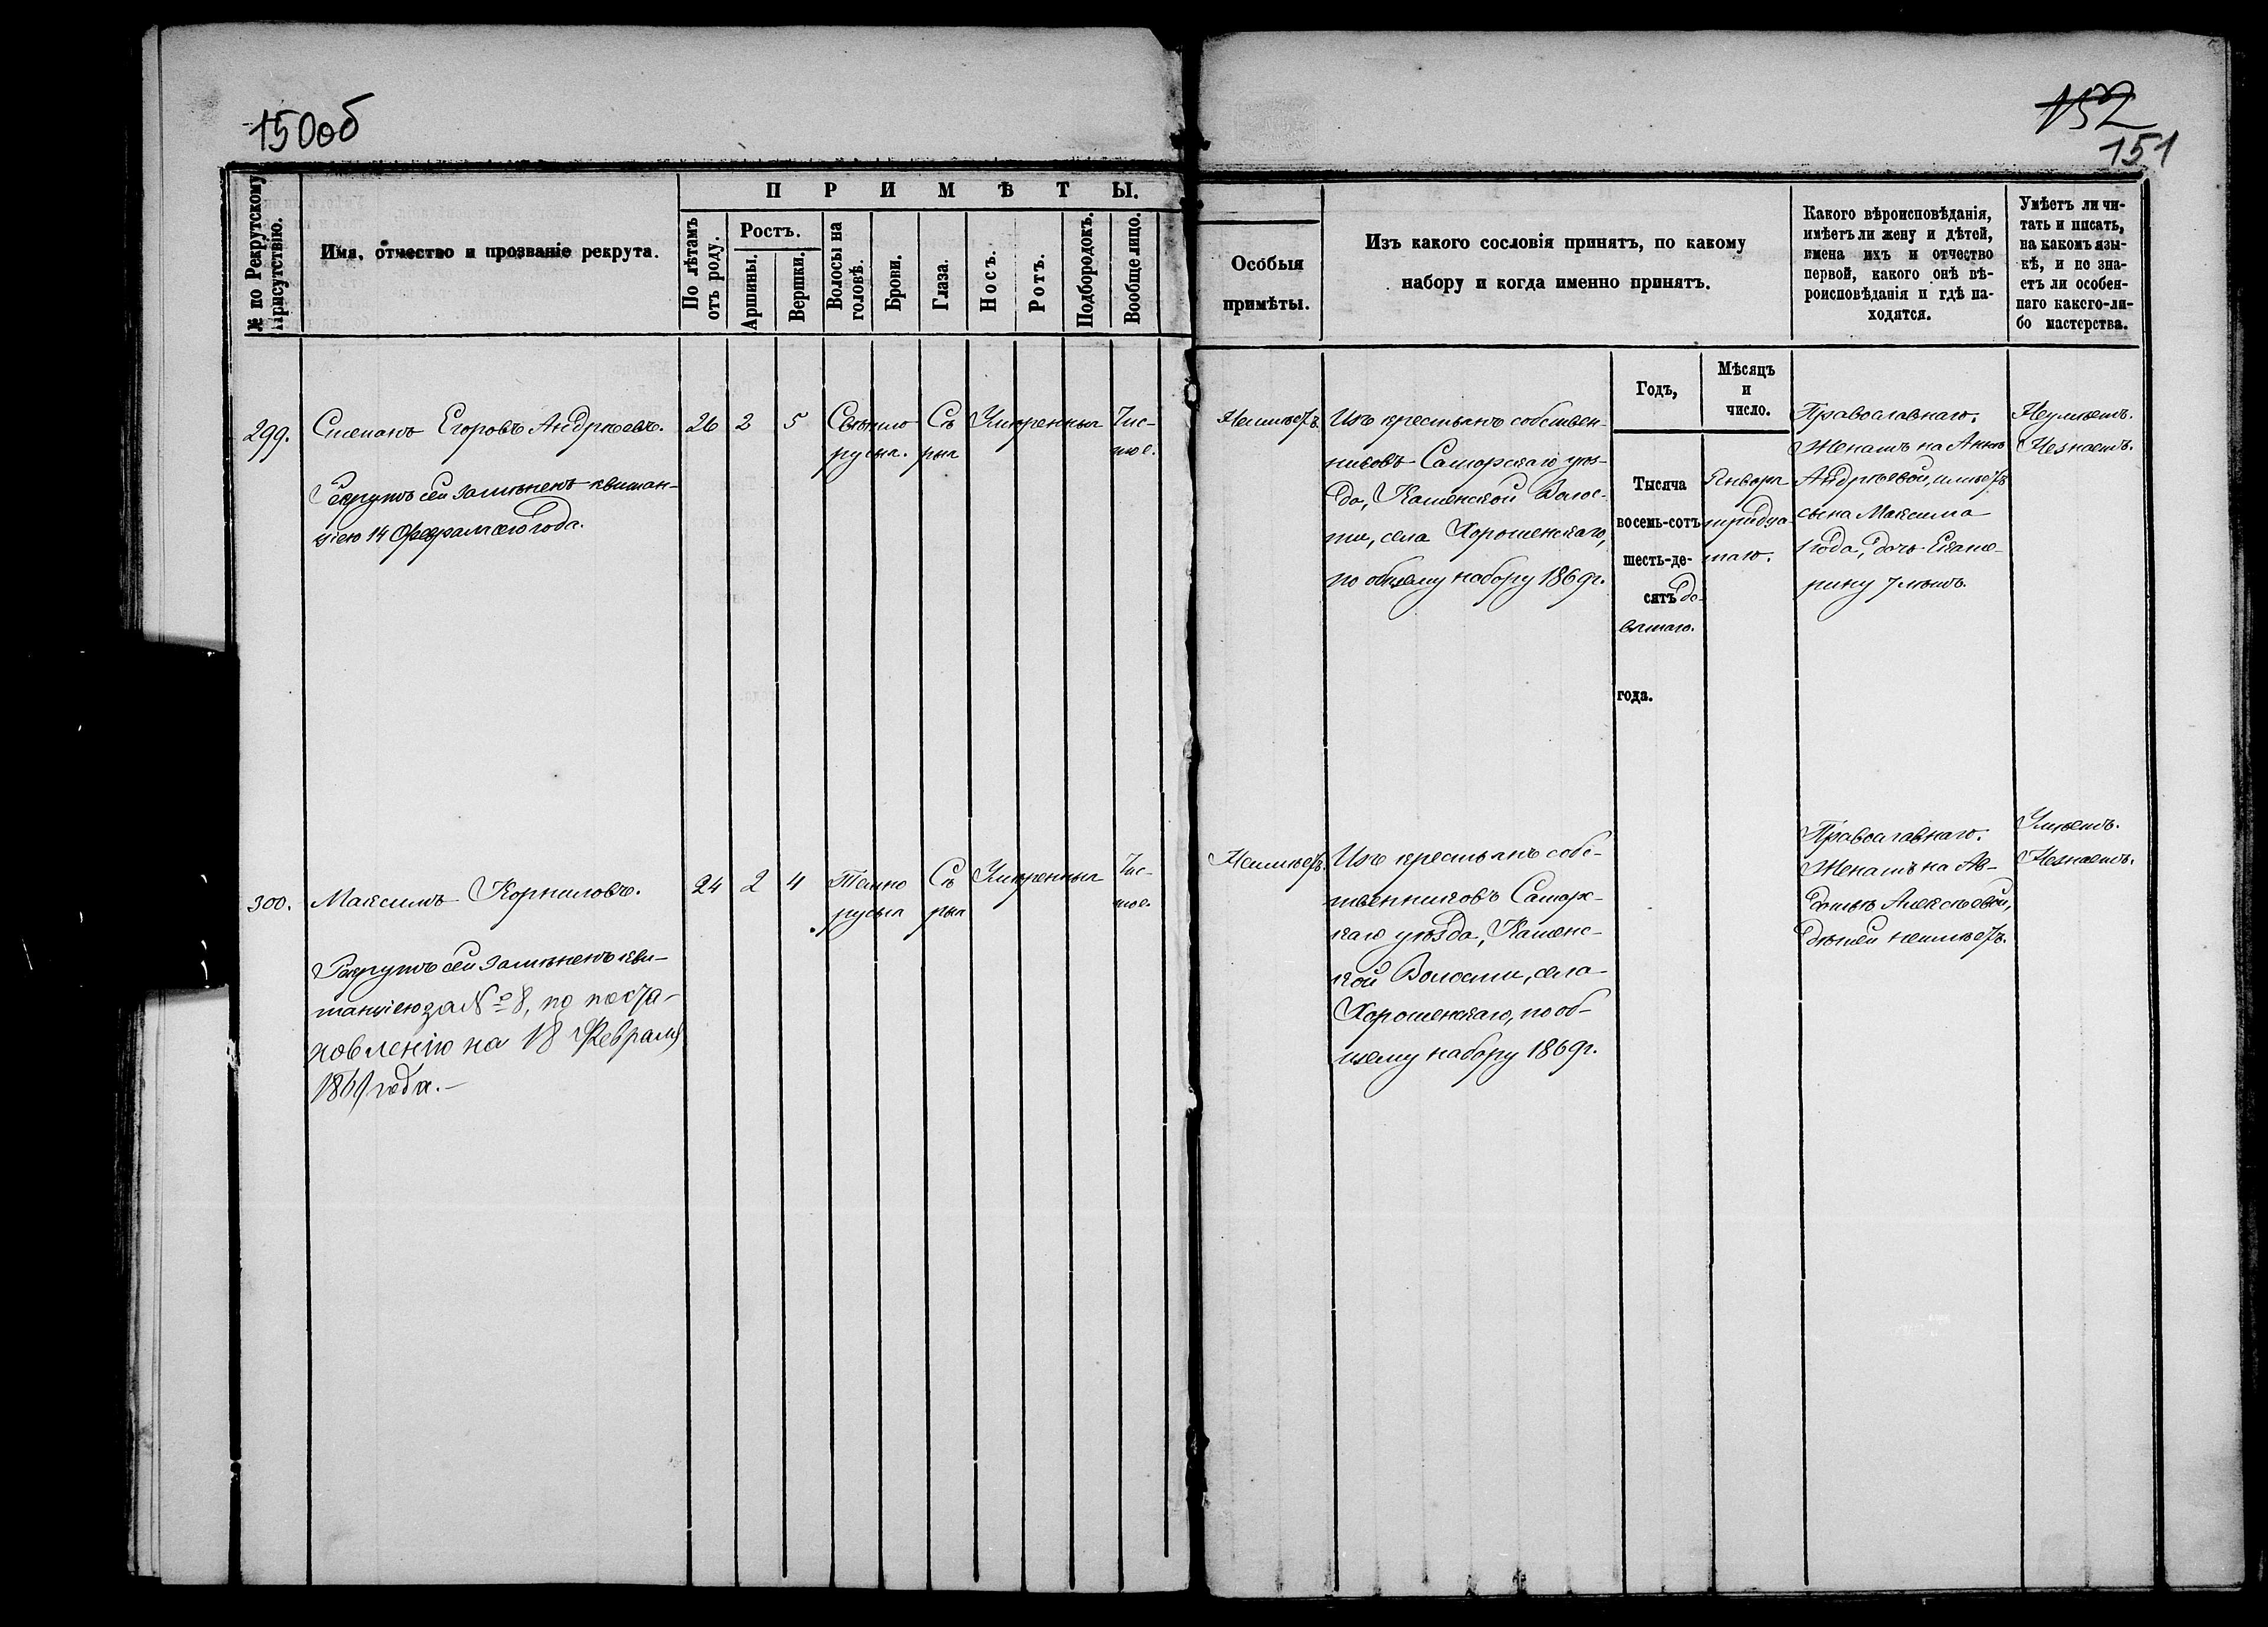 150об
152
151
№ по Рекрутскому
Присутствію.
Имя, отчество и прозваніе рекрута.
ПРИМѢТЫ.
По лѣтамъ
отъ роду.
Ростъ.
Аршины.
Вершки.
Волосы на
головѣ.
Брови.
Глаза.
Носъ.
Ротъ.
Подбородокъ.
Вообще лицо.
Особыя
примѣты.
Изъ какого сословія принятъ, по какому
набору и когда именно принятъ.
Какого вѣроисповѣданія,
имѣетъ ли жену и дѣтей,
имена ихъ и отчество
первой, какого онѣ вѣ-
роисповѣданія и гдѣ на-
ходятся.
Умѣетъ ли чи-
тать и писать,
на какомъ язы-
кѣ, и не зна-
етъ ли особен-
наго какого-ли-
бо мастерства.
299.
Степанъ Егоровъ Андреевъ.
Рекрутъ сей замѣненъ квитан-
ціею 14 февраля сего года.
26
2
5
Свѣтло
русыя.
Сѣ
рыя
Умѣренныя
Чис-
тое.
Неимѣетъ.
Изъ крестьянъ собствен-
никовъ Самарскаго уѣз-
да, Каменской Волос-
ти, села Хорошенскаго,
по общему набору 1869г.
Годъ,
Тысяча
восемь-сотъ
шесть-де-
сятъ де-
вятаго.
года.
Мѣсяцъ
и
число.
Января
тридца
таго.
Православнаго.
Женатъ на Аннѣ
Андреевой, имѣетъ
сына Максима
1 года, дочь Екате-
рину 7 лѣтъ.
Неумѣетъ.
Незнаетъ.
300.
Максимъ Корниловъ.
Рекрутъ сей замѣненъ кви-
танціею за № 8, по поста-
новленію на 18 Февраля
1869 года.—
24
2
4
Темно
русыя
Сѣ
рыя
Умѣренныя
Чис-
тое.
Неимѣетъ.
Изъ крестьянъ собс-
твенниковъ Самарс-
каго уѣзда, Каменс-
кой Волости, села
Хорошенскаго, по об-
щему набору 1869г.
Православнаго.
Женатъ на Ав-
дотьѣ Алексѣевой,
дѣтей неимѣетъ.
Умѣетъ.
Незнаетъ.